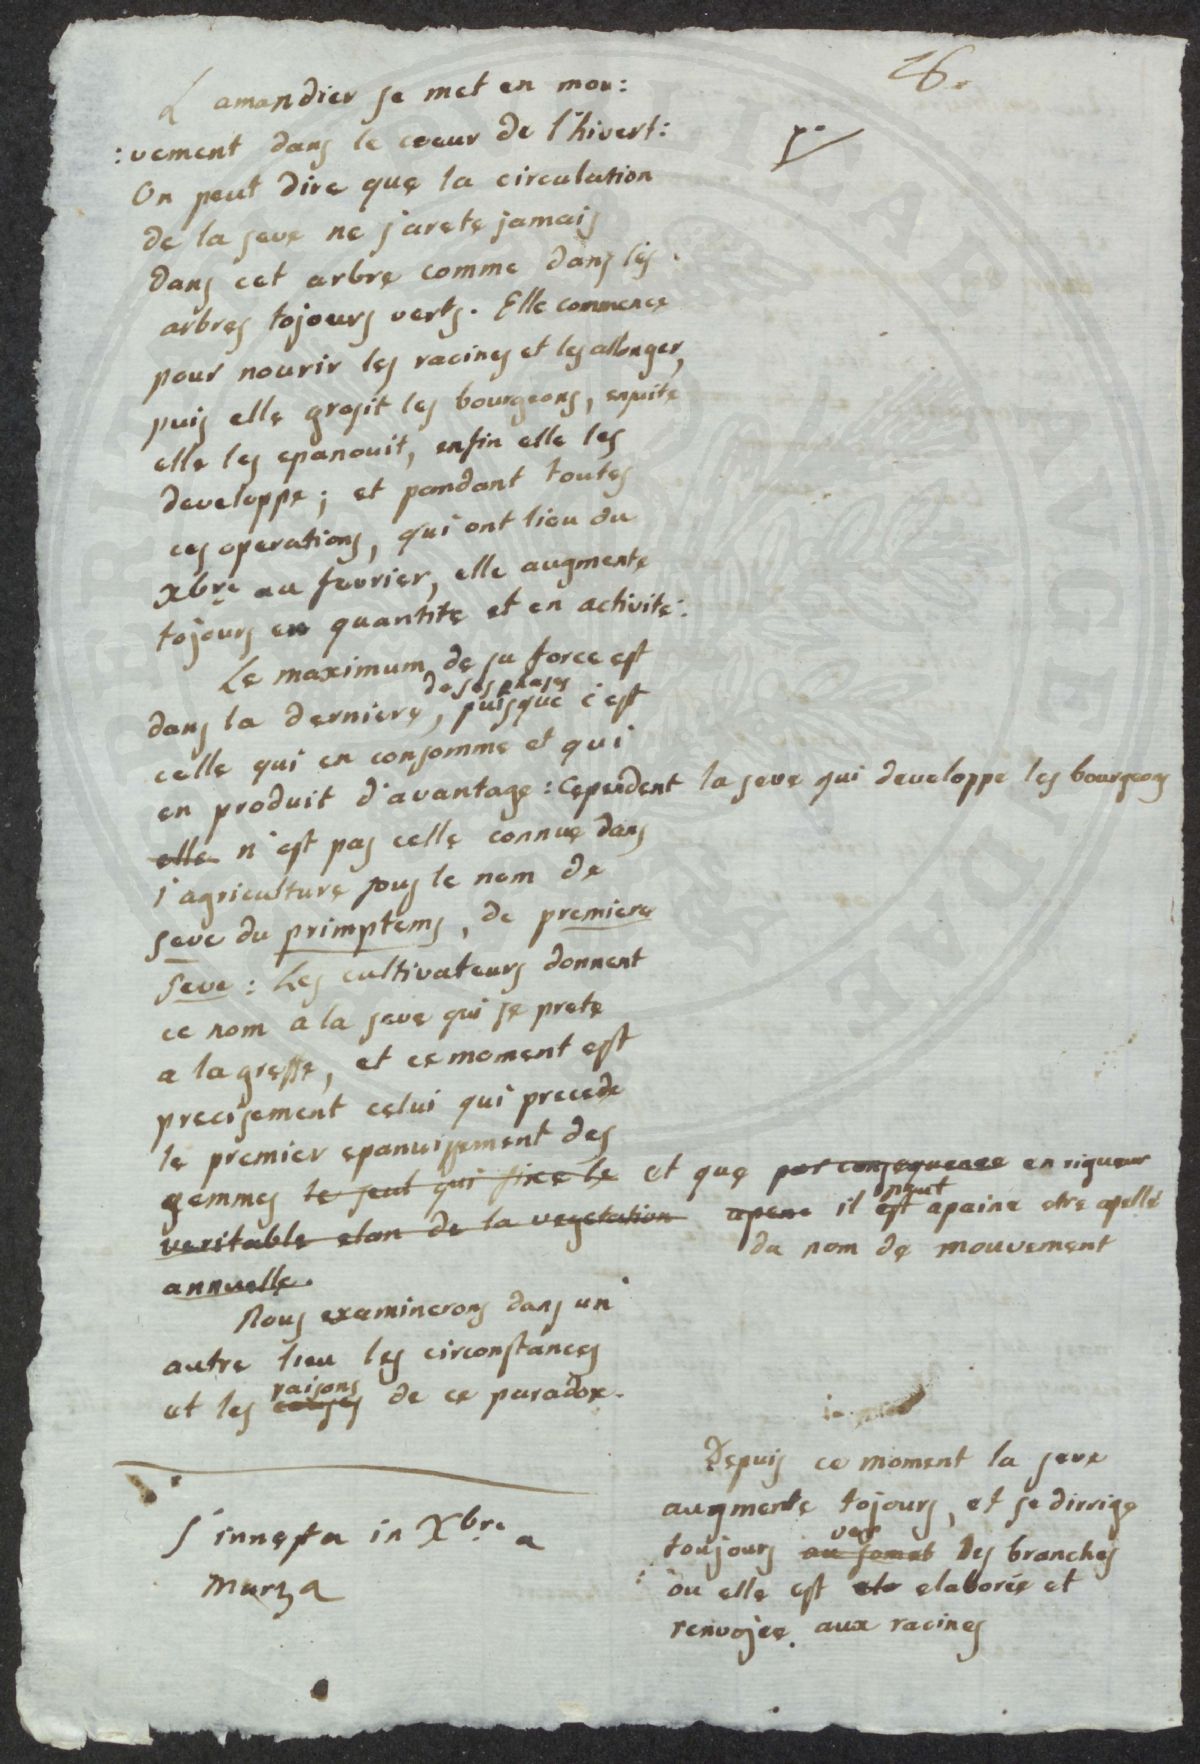 26.
po
L amandier se met en mou:
:vement dans le coeur de l'hivert:
On peut dire que la circulation
de la seve ne s'arete jamais
dans cet arbre comme dans les
arbres tojours verts. Elle commence
pour nourir les racines et les allonger,
puis elle grosit les bourgeons, ensuite
elle les epanouit, enfin elle les
developpe; et pandant toutes
ces operations, qui ont lieu du
Xbre au fevrier, elle augmente
tojours en quantite et en activite.
Le maximum de sa force est
de ses phases
dans la derniere, puisque c'est
celle qui en consomme et qui
en produit d'avantage: Cependent la seve qui developpe les bourgeons
elle n'est pas celle connue dans
l'agriculture sous le nom de
seve du primptems, de premiere
seve: Les cultivateurs donnent
ce nom a la seve qui se prete
a la greffe, et ce moment est
precisement celui qui precede
le premier epanuisement des
gemmes le seul qui fixe le et que par consequence en rigueur
peut
veritable elan de la vegetation apene il est apaine etre apellé
du nom de mouvement
annuelle.
Nous examinerons dans un
autre lieu les circonstances
raisons
et les causes de ce paradoxe.
S'innesta in Xbre a
Murza
Depuis ce moment la seve
augmente tojours, et se dirrige
vers
toujours au somet des branches
ou elle est ele elaborée et
renvojee aux racines